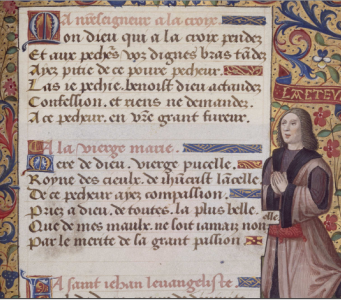 A n̄reseigneur a la croix
Mon dieu qui a la croix pendez
Et aux pecheℯ voz dignes bras tādez
Ayez pitie de ce poure pecheur.
Las ie peche. benoist dieu
Confession. et riens ne demande.
A ce pecheur. en v̄re grant fureur.
A la vierge marie.
Mere de dieu. vierge pucelle.
Royne des cieulx. de
De ce pecheur ayez compassion.
Priez a dieu. de toutes. la plus belle.
Que de mes maulx. ne soit iamais non
elle.
Par le merite de sa grant passion
A saint iehan leuangeliste.
LACTEV